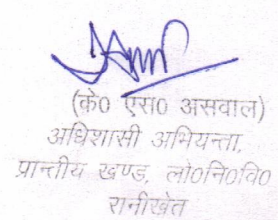 (के0 एस0 असवाल)
अधिशासी अभियन्ता,
प्रान्तीय खण्ड, लो0नि0वि0
रानीखेत